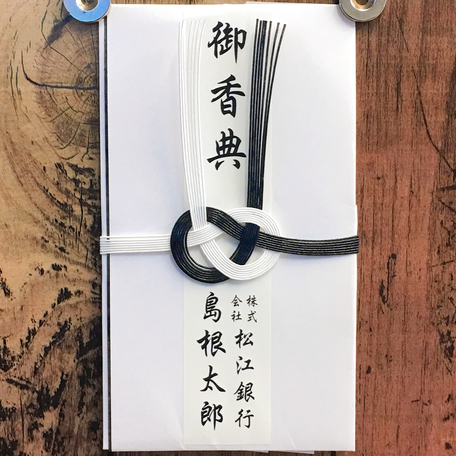 御香典
株式会社松江銀行
島根太郎